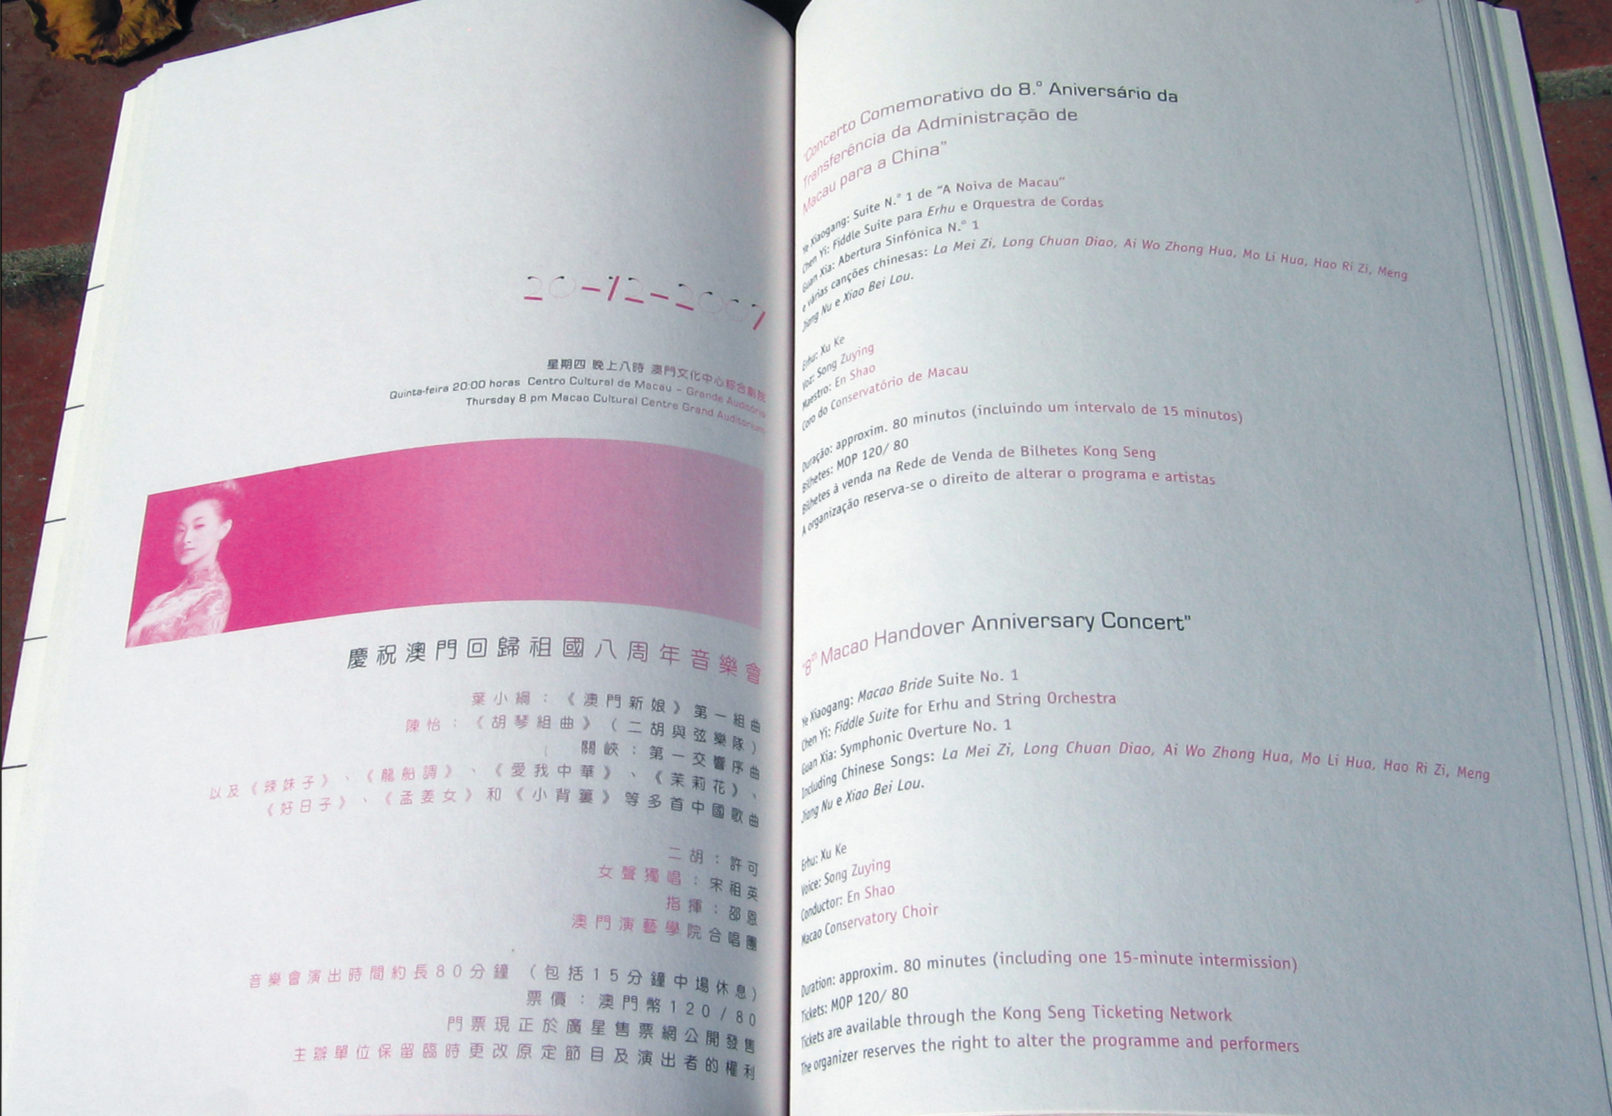 20-12-2007
星期四 晚上八時 澳門文化中心綜合劇院
Quinta-feira 20:00 horas Centro Cultural de Macau – Grande Auditório
Thursday 8 pm Macao Cultural Centre Grand Auditorium
慶祝澳門回歸祖國八周年音樂會
葉小綱：《澳門新娘》第一組曲
陳怡：《胡琴組曲》（二胡與弦樂隊）
關峽：第一交響序曲
以及《辣妹子》、《龍船調》、《愛我中華》、《茉莉花》、
《好日子》、《孟姜女》和《小背簍》等多首中國歌曲
二胡：許可
女聲獨唱：宋祖英
指揮：邵恩
澳門演藝學院合唱團
音樂會演出時間約長80分鐘（包括15分鐘中場休息）
票價：澳門幣120/80
門票現正於廣星售票網公開發售
主辦單位保留臨時更改原定節目及演出者的權利
"Concerto Comemorativo do 8.º Aniversário da
Transferência da Administração de
Macau para a China"
Ye Xiaogang: Suite N.º 1 de "A Noiva de Macau"
Chen Yi: Fiddle Suite para Erhu e Orquestra de Cordas
Guan Xia: Abertura Sinfónica N.º 1
e várias canções chinesas: La Mei Zi, Long Chuan Diao, Ai Wo Zhong Hua, Mo Li Hua, Hao Ri Zi, Meng
Jiang Nu e Xiao Bei Lou.
Erhu: Xu Ke
Voz: Song Zuying
Maestro: En Shao
Coro do Conservatório de Macau
Duração: approxim. 80 minutos (incluindo um intervalo de 15 minutos)
Bilhetes: MOP 120/ 80
Bilhetes à venda na Rede de Venda de Bilhetes Kong Seng
A organização reserva-se o direito de alterar o programa e artistas
"8th Macao Handover Anniversary Concert"
Ye Xiaogang: Macao Bride Suite No. 1
Chen Yi: Fiddle Suite for Erhu and String Orchestra
Guan Xia: Symphonic Overture No. 1
Including Chinese Songs: La Mei Zi, Long Chuan Diao, Ai Wo Zhong Hua, Mo Li Hua, Hao Ri Zi, Meng
Jiang Nu e Xiao Bei Lou.
Erhu: Xu Ke
Voice: Song Zuying
Conductor: En Shao
Macao Conservatory Choir
Duration: approxim. 80 minutes (including one 15-minute intermission)
Tickets: MOP 120/ 80
Tickets are available through the Kong Seng Ticketing Network
The organizer reserves the right to alter the programme and performers